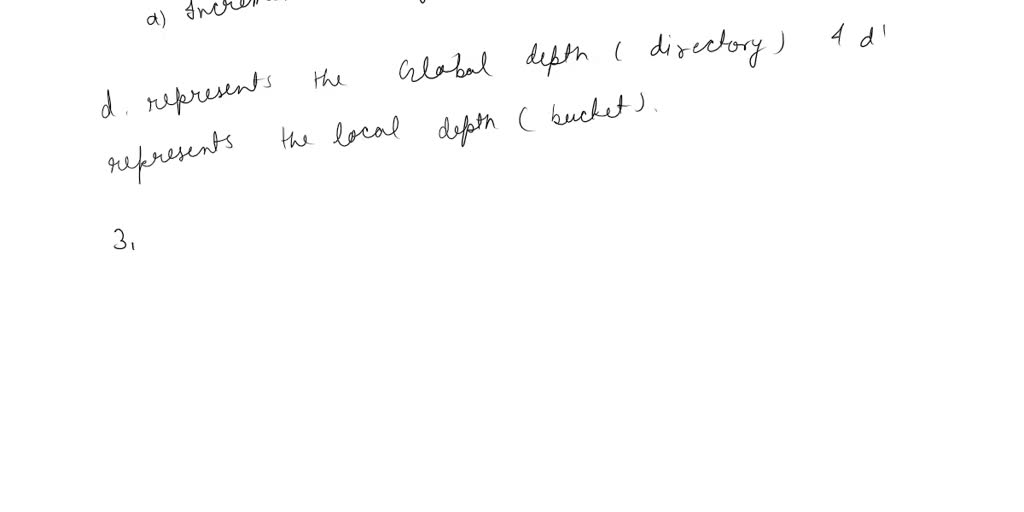 a)
d. represents the Global depth ( directory ) & d'
represents the local depth ( bucket ).
3.